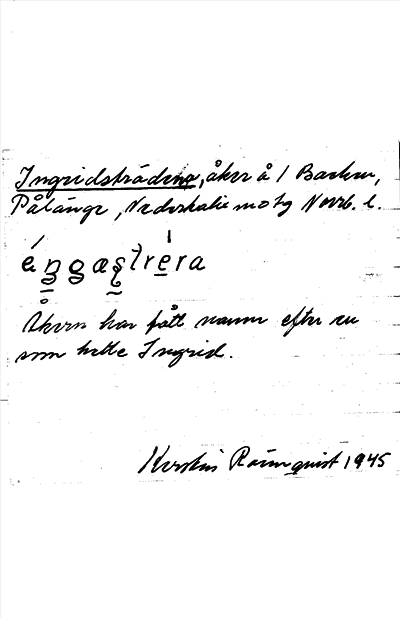 Ingridsträdena, åker å 1 Backen,
Pålänge, Nederkalix m o tg Norrb. l.
éŋgæstrera
Åkern har fått namn efter en
som hette Ingrid.
Kerstin Rönnquist 1945